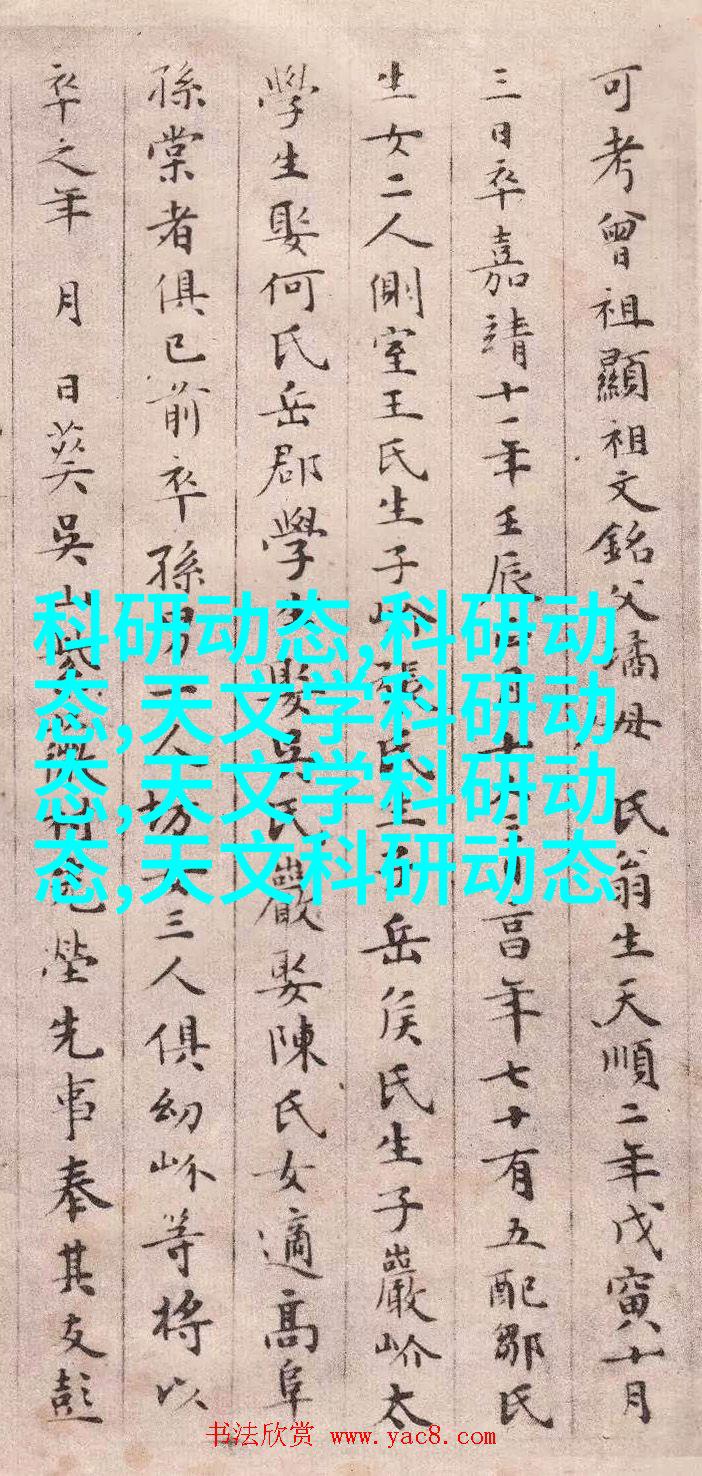 可考曾祖顯祖文銘父璚母 氏翁生天順二年戊寅十月
三日卒嘉靖十一年壬辰 年七十有五配鄒氏
生女二人側室王氏生子岎張氏生 岳侯氏生子巖岎太
學生娶何氏岳郡學 娶吳氏巖娶陳氏女適高阜
孫棠者俱已前卒孫男一人坊女三人俱幼岎等將以
卒之年 月 日葬吳山 塋先事奉其友彭
科研动态,科研动
态,天文学科研动
态,天文学科研动
态,天文科研动态
书法欣赏 www.yac8.com